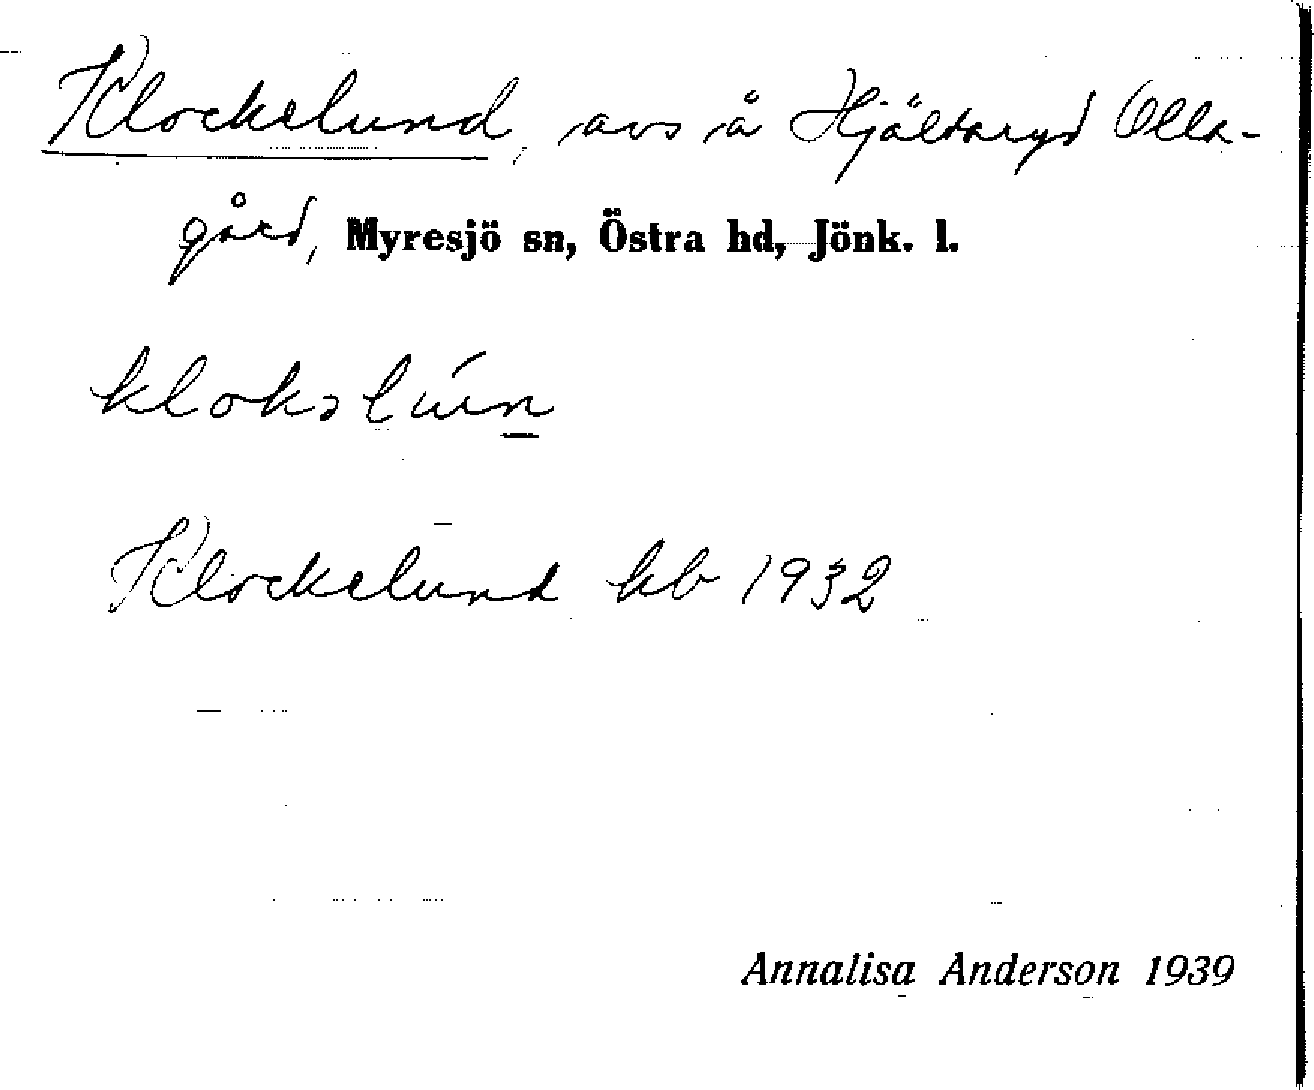 Klockelund, avs å Hjältaryd Olla-
gård, Myresjö sn, Östra hd, Jönk. l.
klokəlún
Klockelund kb 1932
Annalisa Anderson 1939